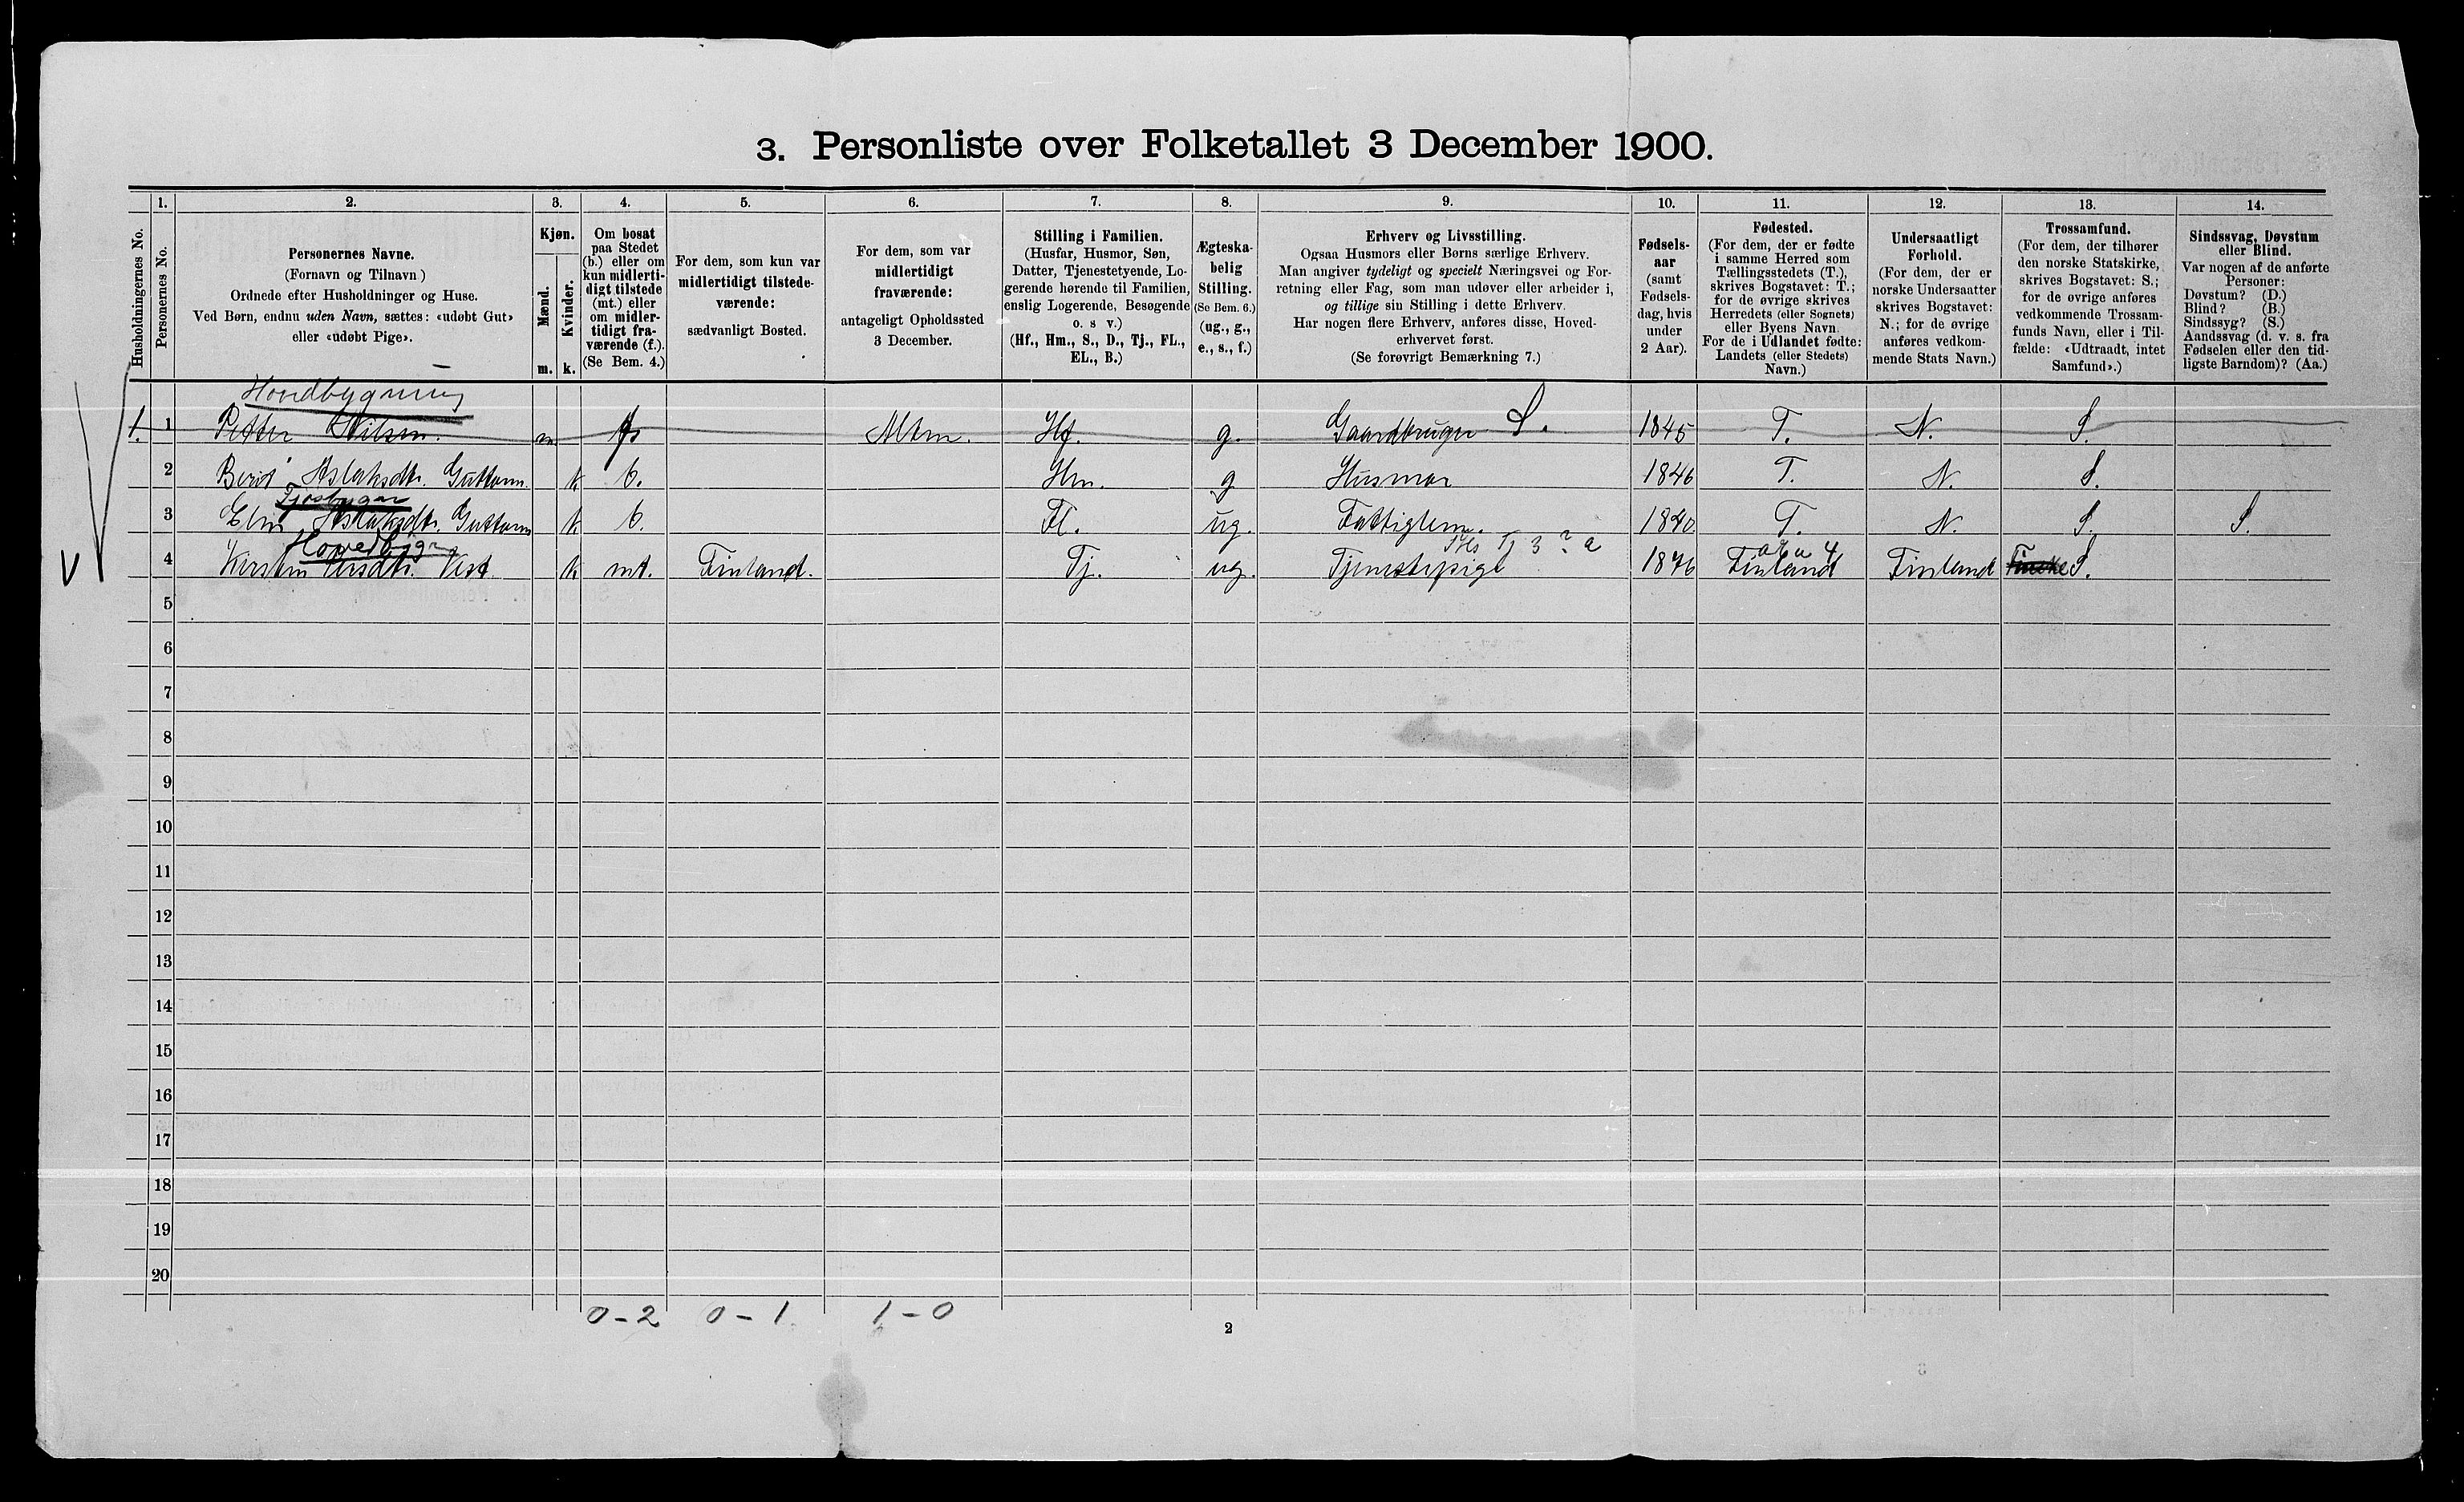 3. Personliste over Folketallet 3 December 1900.
Husholdningernes No.
1.
Personernes No.
2.
Personernes Navne.
(Fornavn og Tilnavn)
Ordnede efter Husholdninger og Huse.
Ved Børn, endnu uden Navn, sættes: «udøbt Gut»
eller «udøbt Pige».
3.
Kjøn.
Mænd.
m.
Kvinder.
k.
4.
Om bosat
paa Stedet
(b.) eller om
kun midlerti-
digt tilstede
(mt.) eller
om midler-
tidigt fra-
værende (f.).
(Se Bem. 4.)
5.
For dem, som kun var
midlertidigt tilstede-
værende:
sædvanligt Bosted.
6.
For dem, som var
midlertidigt
fraværende:
antageligt Opholdssted
3 December.
7.
Stilling i Familien.
(Husfar, Husmor, Søn,
Datter, Tjenestetyende, Lo-
gerende hørende til Familien,
enslig Logerende, Besøgende
o. s v.)
(Hf., Hm., S., D., Tj., FL.,
EL., B.)
8.
Ægteska-
belig
Stilling.
(Se Bem. 6.)
(ug., g.,
e., s., f.)
9.
Erhverv og Livsstilling.
Ogsaa Husmors eller Børns særlige Erhverv.
Man angiver tydeligt og specielt Næringsvei og For-
retning eller Fag, som man udøver eller arbeider i,
og tillige sin Stilling i dette Erhverv.
Har nogen flere Erhverv, anføres disse, Hoved-
erhvervet først.
(Se forøvrigt Bemærkning 7.)
10.
Fødsels-
aar
(samt
Fødsels-
dag, hvis
under
2 Aar).
11.
Fødested.
(For dem, der er fødte
i samme Herred som
Tællingsstedets (T.),
skrives Bogstavet: T.;
for de øvrige skrives
Herredets (eller Sognets)
eller Byens Navn.
For de i Udlandet fødte:
Landets (eller Stedets)
Navn.)
12.
Undersaatligt
Forhold.
(For dem, der er
norske Undersaatter
skrives Bogstavet:
N.; for de øvrige
anføres vedkom-
mende Stats Navn.)
13.
Trossamfund.
(For dem, der tilhører
den norske Statskirke,
skrives Bogstavet: S.;
for de øvrige anføres
vedkommende Trossam-
funds Navn, eller i Til-
fælde: «Udtraadt, intet
Samfund».)
14.
Sindssvag, Døvstum
eller Blind.
Var nogen af de anførte
Personer:
Døvstum? (D.)
Blind? (B.)
Sindssyg? (S.)
Aandssvag (d. v. s. fra
Fødselen eller den tid-
ligste Barndom)? (Aa.)
Hovedbygning
1. 1 Petter Nilsen. m Hf. g. Gaardbruger S. 1845 T. N. S.
2 Berit Aslaksdtr. Guttorm. k b. Hm. g Husmor 1846 T. N. S.
Fjøsbygn
3 Elen Aslaksdtr. Guttorm k b. Fl. ug. Fattiglem. 1840 T. N. S. S.
Hovedbygn
4 Kirsten Persdtr. Vest. k mt. Finland. Tj. ug. Tjenestepige Tj 3 ? a 1876 Finland 4 Finland S.
5
6
7
8
9
10
11
12
13
14
15
16
17
18
19
20
0-2 0-1 1-0
2